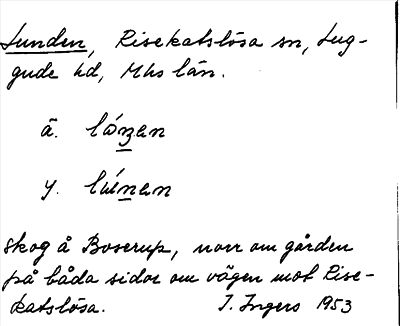 Lunden, Risekatslösa sn, Lug-
gude hd, Mhs län.
ä. lóȵen
y. lúnen
skog å Boserup, norr om gården
på båda sidor om vägen mot Rise-
katslösa. I. Ingers 1953